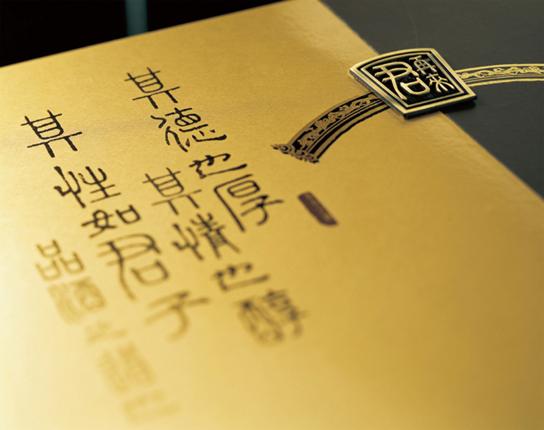 其德也厚
其情也醇
其性如君子
品酒之
君再來